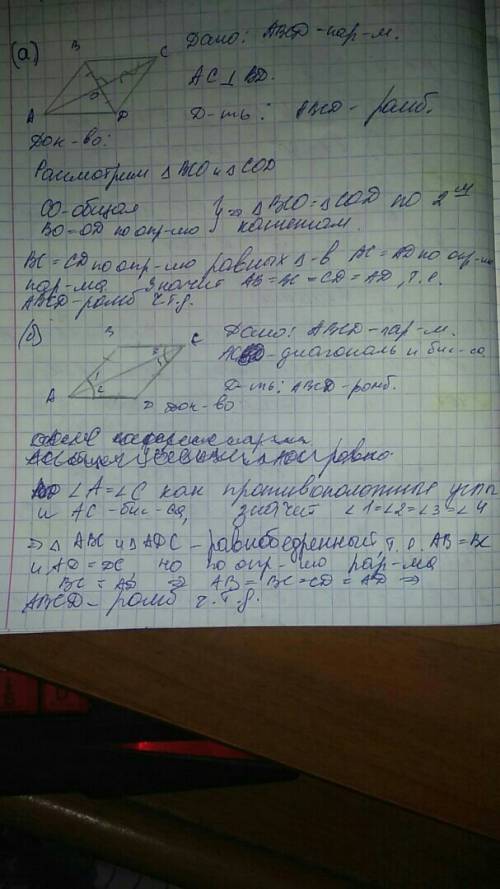 (а)
B C
A O D
Дано: ABCD - пар-м.
AC ⊥ BD.
Д-ть: ABCD - ромб.
Док-во:
Рассмотрим △ BCO и △ COD
CO - общая
BO = OD по опр-ию } ⇒ △ BCO = △ COD по 2ум
катетам.
BC = CD по опр-ию равных △-в
пар-ма Значит AB = BC = CD = AD, т.е.
ABCD - ромб ч.т.д.
(б)
B C
A D
1 2
Дано: ABCD - пар-м.
AC - диагональ и бис-са
Д-ть: ABCD - ромб.
Док-во
∠A = ∠C как противоположные углы
и AC - бис-са, значит ∠1 = ∠2 = ∠3 = ∠4
⇒ △ ABC и △ ADC - равнобедренный, т.е. AB = BC
и AD = DC, но по опр-ию пар-ма
BC = AD ⇒ AB = BC = CD = AD ⇒
ABCD - ромб ч.т.д.